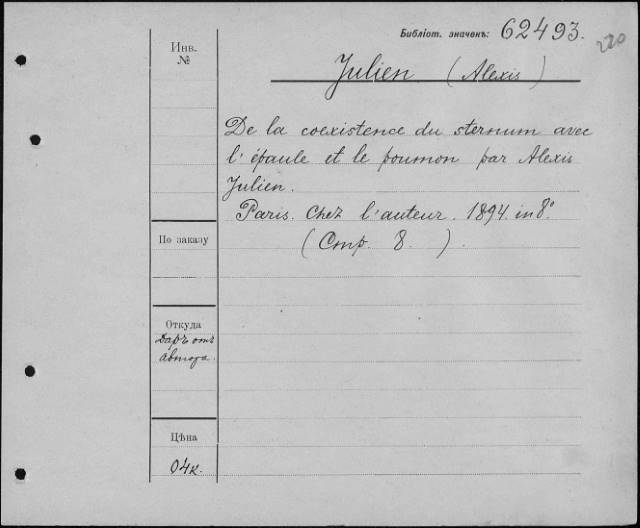 Библіот. значекъ: 62493.
220
Инв.
№
Julien (Alexis)
De la coexistence du sternum avec
l'épaule et le poumon par Alexis
Julien.
Paris. Chez l'auteur. 1894. in 8°
(Стр. 8.)
По заказу
Откуда
Даръ отъ
автора.
Цѣна
04к.